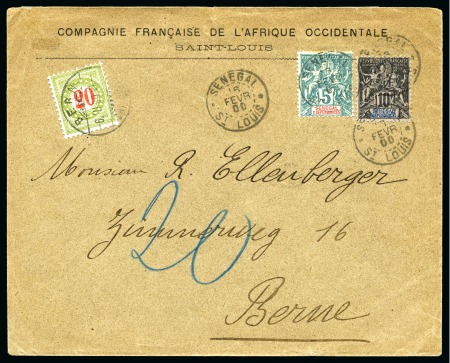 COMPAGNIE FRANÇAISE DE L'AFRIQUE OCCIDENTALE
SAINT-LOUIS
BERN
20
SENEGAL
18
FEVR
00
ST LOUIS
5
10
SENEGAL
FEVR
00
ST LOUIS
Monsieur R. Ellenberger
Zimmerweg 16
20
Berne